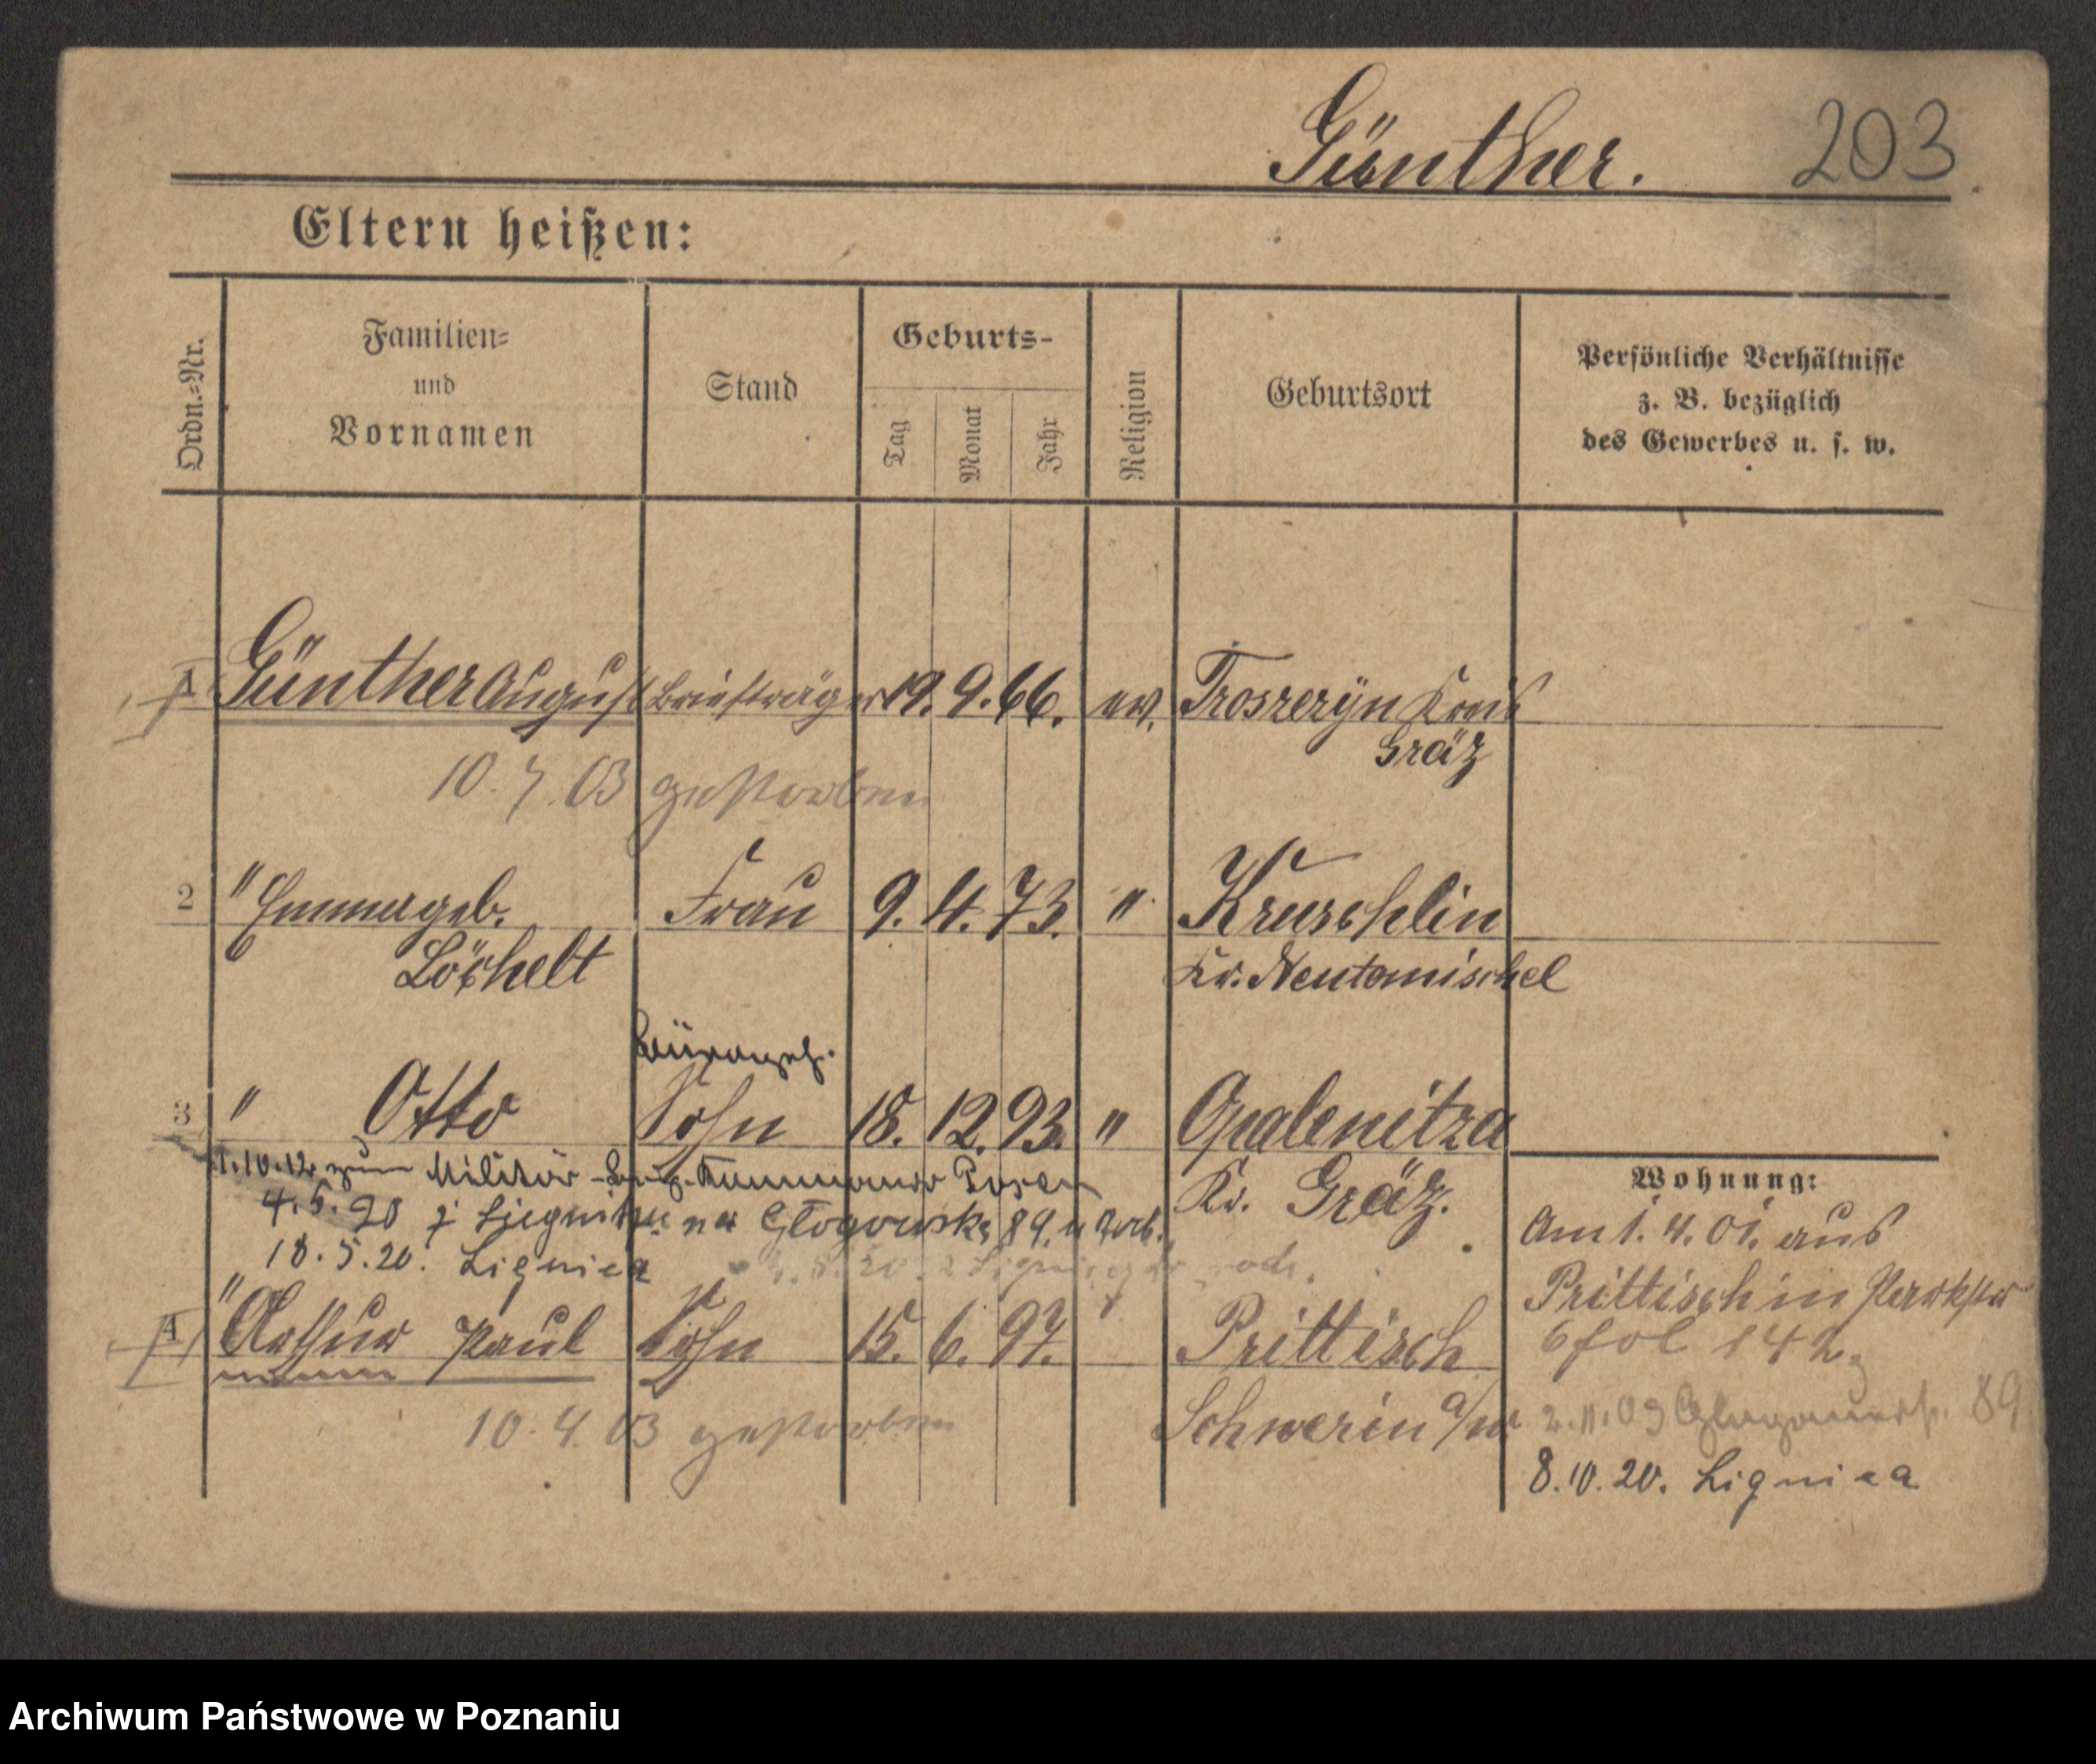 Günther. 203
Eltern heißen:
Ordn.-Nr.
Familien-
und
Vornamen
Stand
Geburts-
Tag
Monat
Jahr
Religion
Geburtsort
Persönliche Verhältnisse
z. B. bezüglich
des Gewerbes u. s. w.
1 Günther August Briefträger 19. 9. 66. ev. Troszczyn Kreis
Grätz
10. 7. 03 gestorben
2 " Emma geb. Frau 9. 4. 73. " Kruschlin
Löchelt Kr. Neutomischel
Bürogeh.
3 " Otto Sohn 18. 12. 93. " Opalenitza
1.10.12 zum Militär - Bez. Kommando Posen
Kr. Grätz.
4.5.20 z Liegnitz na Głogowska 89. u
18.5.20. Lignica
" Arthur Paul Sohn 15. 6. 97. Prittisch
Schwerin a/W
10. 4. 03 gestorben
Wohnung:
Am 1. 4. 01. aus
Prittisch in Parkstr
6 fol 142
2.11.03 Glogauerstr. 89
8.10.20. Lignica
Archiwum Państwowe w Poznaniu